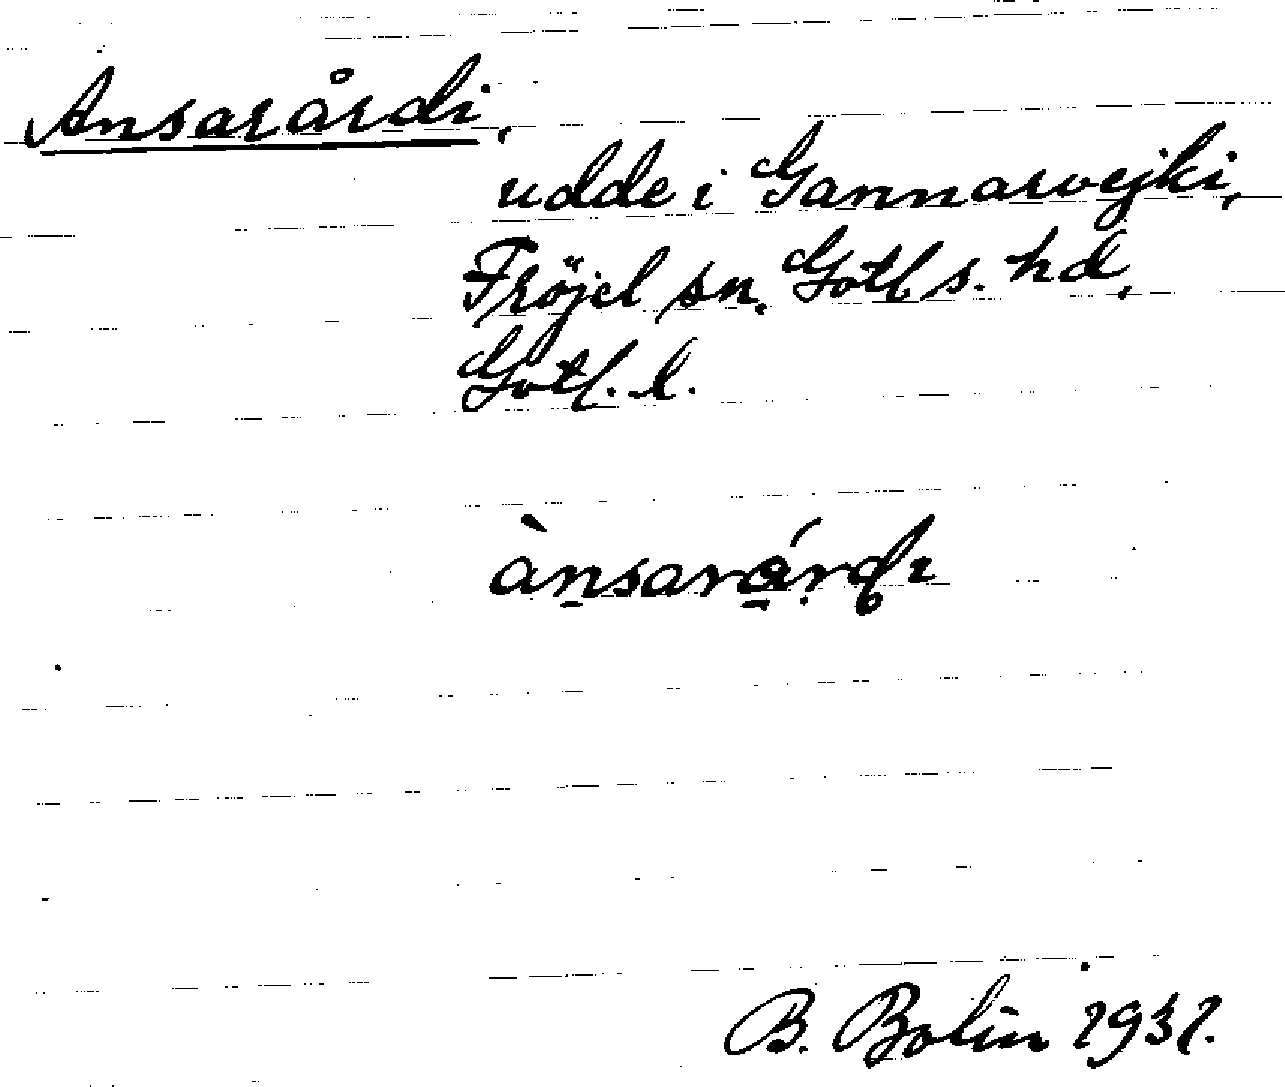 Ansarårdi,
udde i Gannarvejki,
Fröjel sn. Gotl s. hd,
Gotl. l.
ànsarárdı
B. Bolin 1931.